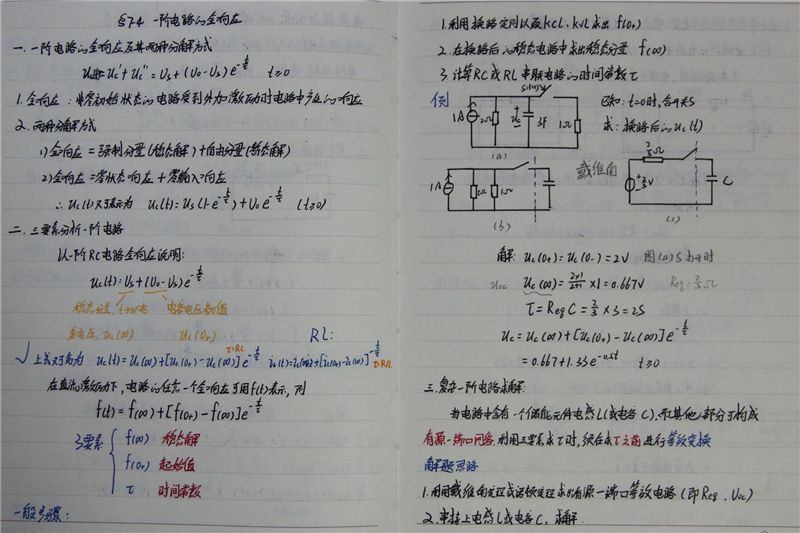 §7.4 一阶电路的全响应
一.一阶电路的全响应及其两种分解方式
Uc(t)=Uc'+Uc''=Us+(U0-Us)e^-t/τ t≥0
1.全响应:非零初始状态的电路受到外加激励时电路中产生的响应
2.两种分解方式
1)全响应=强制分量(稳态解)+自由分量(暂态解)
2)全响应=零状态响应+零输入响应
∴Uc(t)又可表示为 Uc(t)=Us(1-e^-t/τ)+U0e^-t/τ (t≥0)
二.三要素分析一阶电路
以一阶RC电路全响应说明:
Uc(t)=Us+(U0-Us)e^-t/τ
稳态分量,t→∞电 电容电压初值
容电压,Uc(∞) Uc(0+) RL:
上式又可写为 Uc(t)=Uc(∞)+[Uc(0+)-Uc(∞)]e^-t/τ τ=RC iL(t)=iL(∞)+[iL(0+)-iL(∞)]e^-t/τ τ=L/R
在直流激励下,电路的任意一个全响应可用f(t)表示,则
f(t)=f(∞)+[f(0+)-f(∞)]e^-t/τ
3要素
f(∞) 稳态解
f(0+) 起始值
τ 时间常数
一般步骤:
1.利用换路定则以及KCL、KVL求出 f(0+)
2.在换路后的稳态电路中求出稳态分量 f(∞)
3.计算RC或RL串联电路的时间常数τ
例 S(t=0) 已知:t=0时,合开关S
1A 2Ω Uc 3F 1Ω 求:换路后的Uc(t)
(a)
戴维南
1A 2Ω 1Ω
(b)
2/3Ω
2/3V C
(c)
解:Uc(0+)=Uc(0-)=2V 图(a)S为开时
Uoc Uc(∞)=2×1/2+1×1=0.667V Req=2/3Ω
τ=ReqC=2/3×3=2S
Uc=Uc(∞)+[Uc(0+)-Uc(∞)]e^-t/τ
=0.667+1.33e^-0.5t t≥0
三.复杂一阶电路求解:
当电路中含有一个储能元件电感L(或电容C),而其他部分可构成
有源一端口网络,利用三要素求τ时,须在求τ之前进行等效变换
解题思路
1.利用戴维南定理或诺顿定理求出有源一端口等效电路(即Req、Uoc)
2.串接上电感L或电容C,求解.